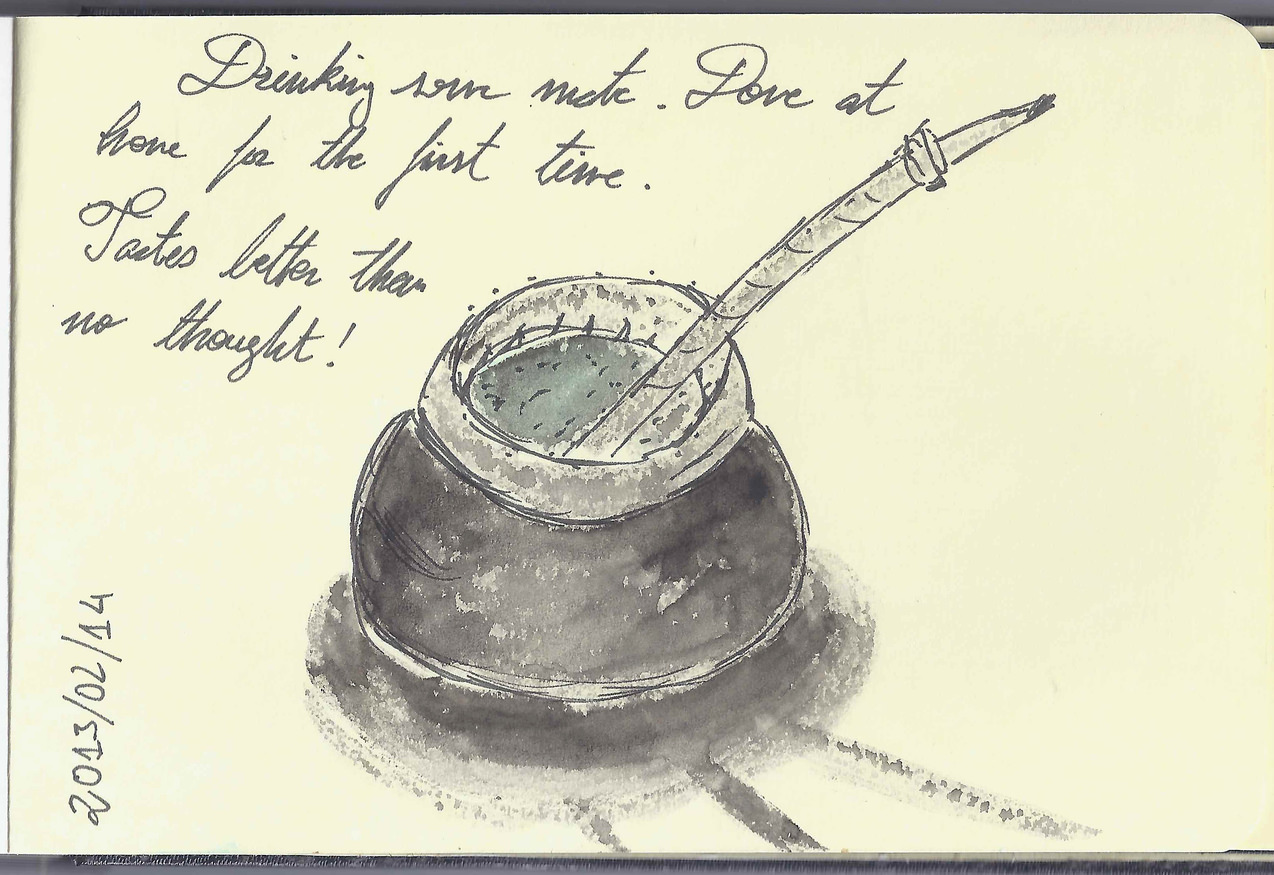 Drinking some mate. Done at
home for the first time.
Tastes better than
no thought!
2013/02/14